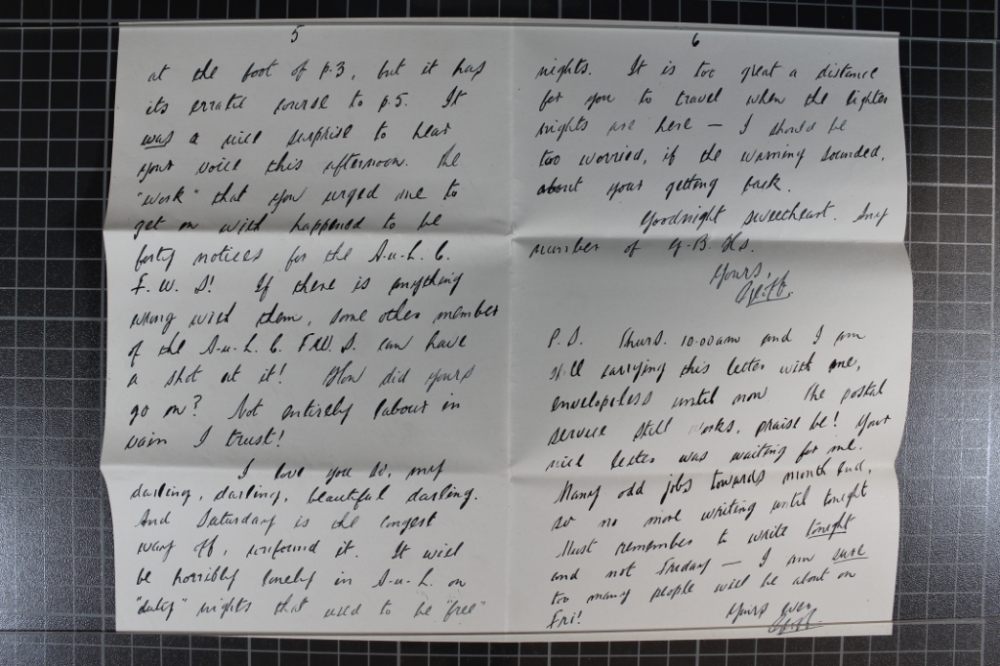 5
at the foot of p.3, but it has
its erratic course to p.5. It
was a nice surprise to hear
your voice this afternoon. The
"work" that you urged me to
get on with happened to be
forty notices for the A-u-L. C.
F. W. S! If there is anything
wrong with them, some other member
of the A-u-L. C. F.W. S. can have
a shot at it! How did yours
go on? Not entirely labour in
vain I trust!
I love you so, my
darling, darling, beautiful darling.
And Saturday is the longest
way off, confound it. It will
be horribly lonely in A-u-L. on
"duty" nights that used to be "free"
6
nights. It is too great a distance
for you to travel when the lighter
nights are here — I should be
too worried, if the warning sounded,
about your getting back.
Goodnight sweetheart. Any
number of G-B. Ks.
Yours,
Geoff.
P.S. Thurs. 10.00am and I am
still carrying this letter with me,
envelopeless until now. The postal
service still works, praise be! Your
nice letter was waiting for me.
Many odd jobs towards month end,
so no more writing until tonight
Must remember to write tonight
and not Friday — I am sure
too many people will be about on
Fri!
Yours ever
Geoff.